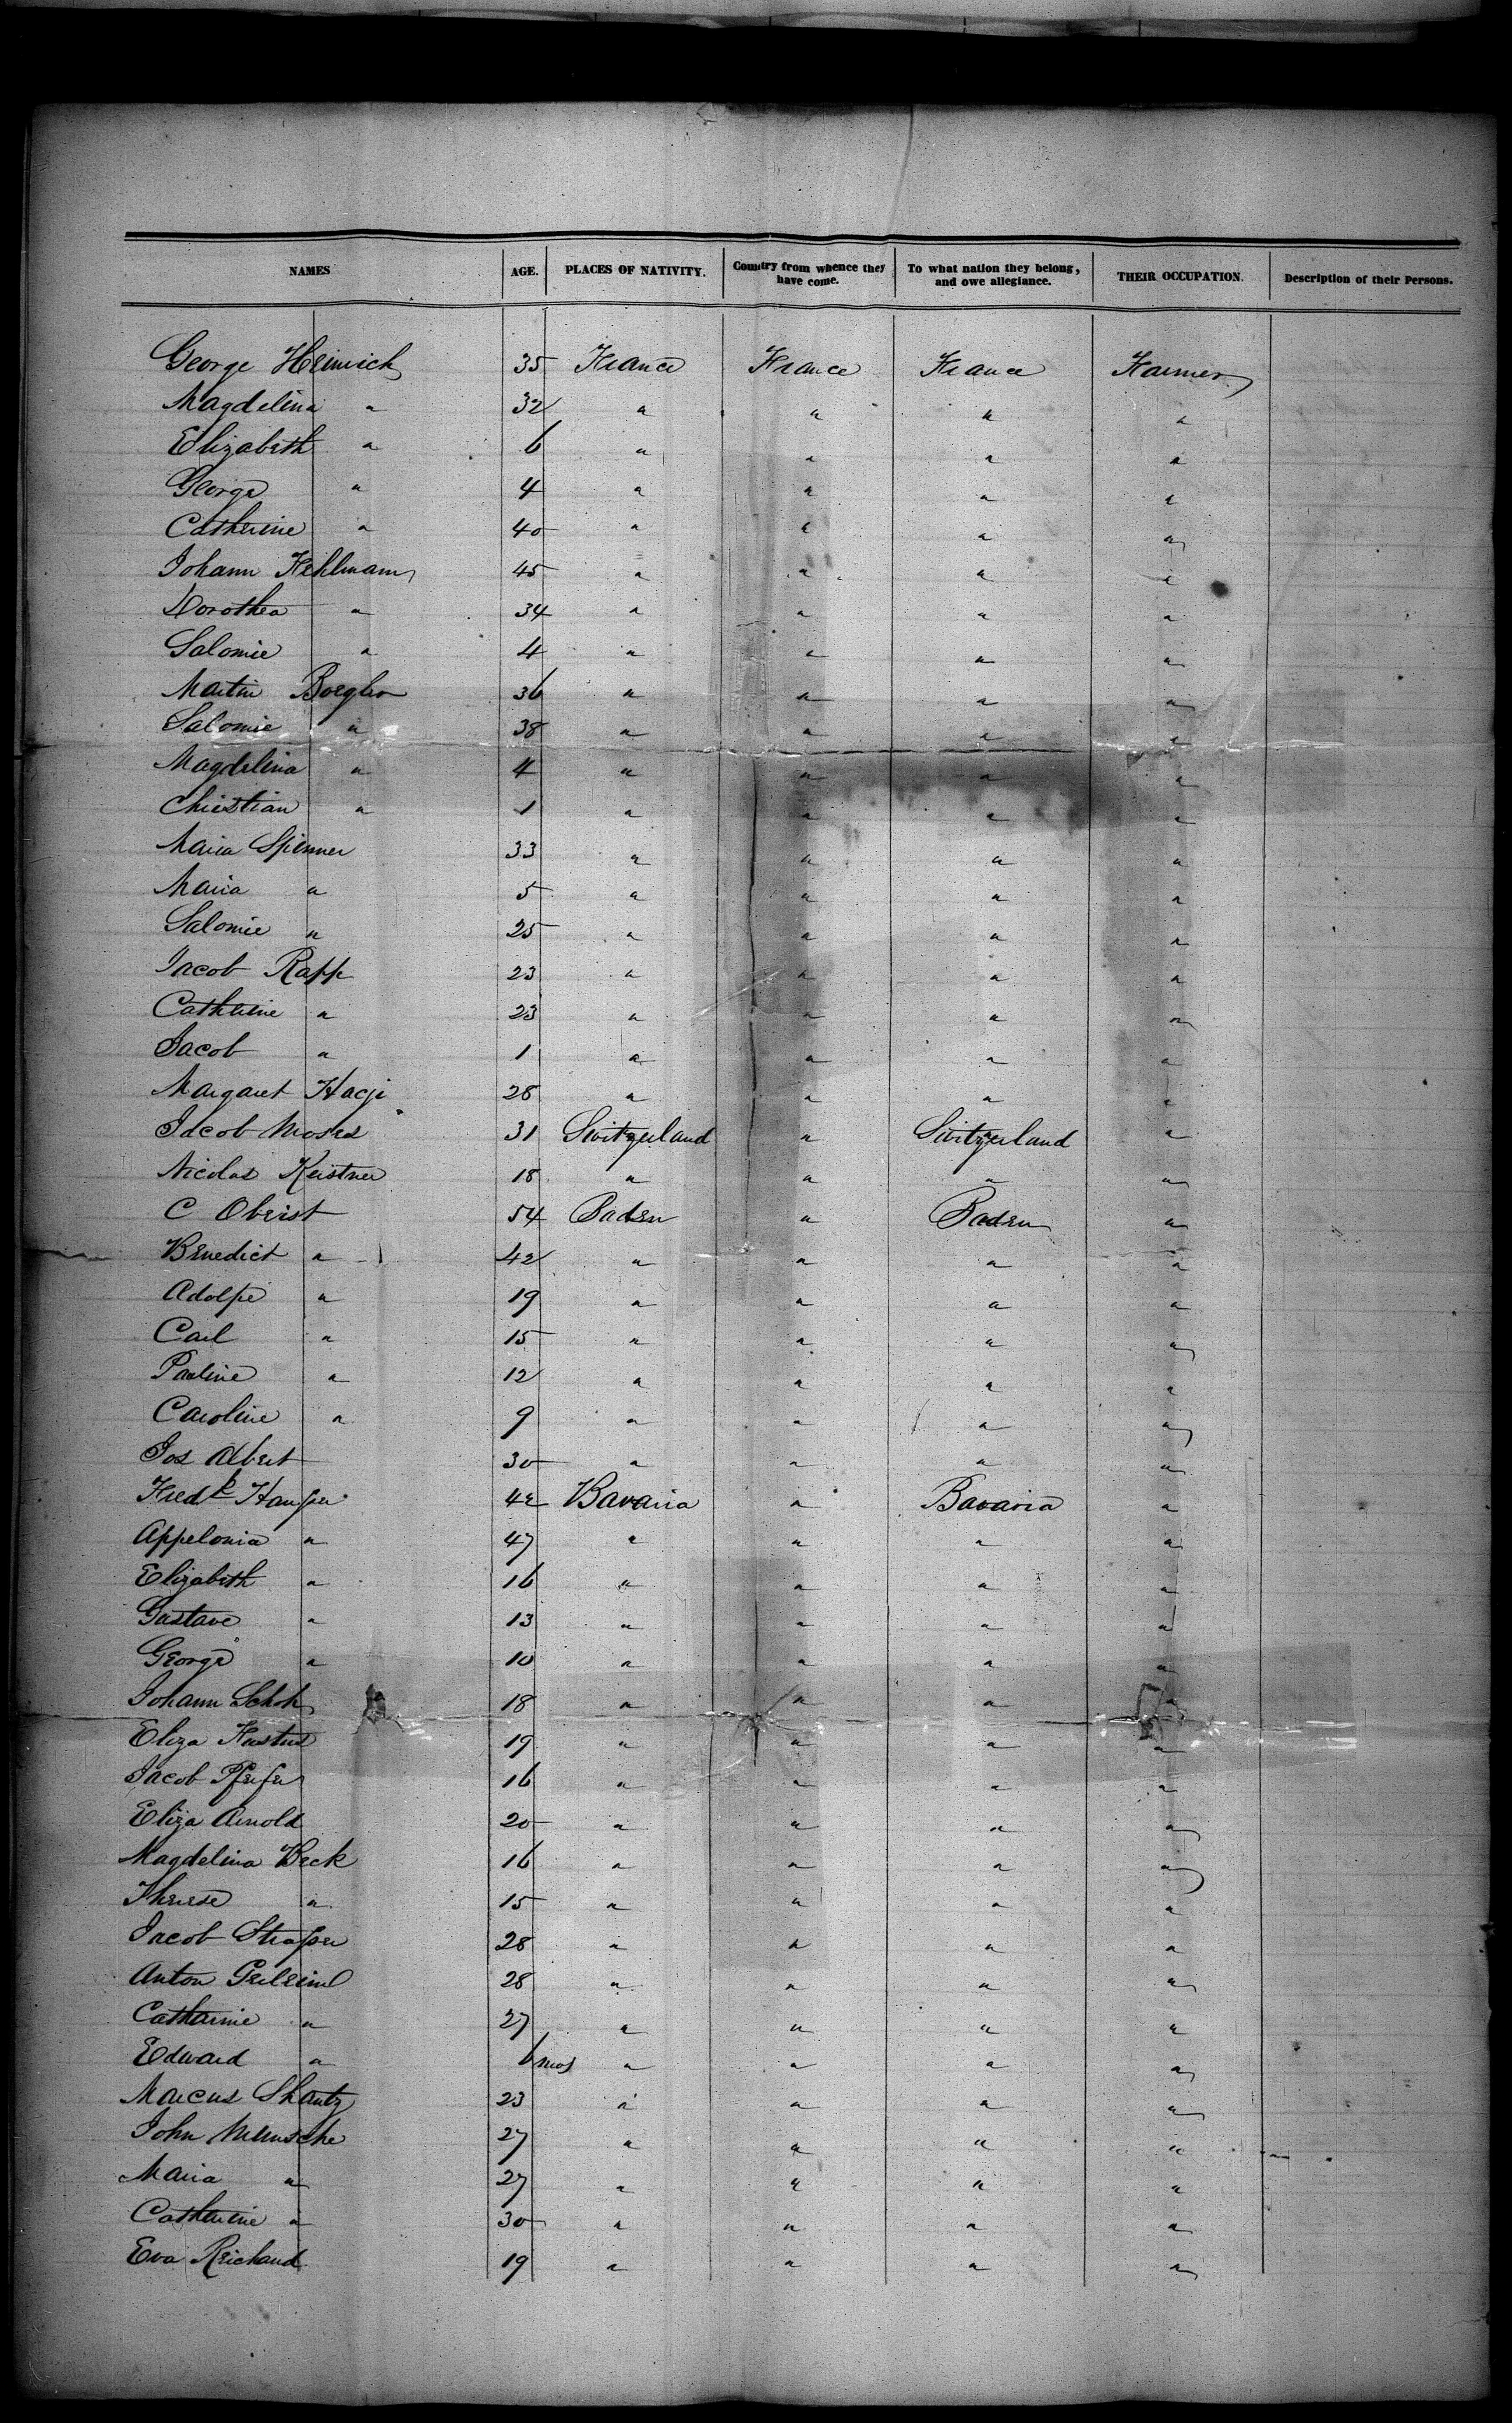 NAMES AGE. PLACES OF NATIVITY. Country from whence they have come. To what nation they belong, and owe allegiance. THEIR OCCUPATION. Description of their Persons.
George Heinrich 35 France France France Farmer
Magdelina " 32 " " " "
Elizabeth " 6 " " " "
George " 4 " " " "
Catherine " 40 " " " "
Johann Fehlmann 45 " " " "
Dorothea " 34 " " " "
Salomie " 4 " " " "
Martin Boegler 36 " " " "
Salomie " 38 " " " "
Magdelina " 4 " " " "
Christian " 1 " " " "
Maria Spinner 33 " " " "
Maria " 5 " " " "
Salomie " 25 " " " "
Jacob Rapp 23 " " " "
Catherine " 23 " " " "
Jacob " 1 " " " "
Margaret Hagi 28 " " " "
Jacob Moses 31 Switzerland " Switzerland "
Nicolas Keistner 18 " " " "
C Oberist 54 Baden " Baden "
Benedict " 42 " " " "
Adolpe " 19 " " " "
Carl " 15 " " " "
Pauline " 12 " " " "
Caroline " 9 " " " "
Jos Albert 30 " " " "
Fredk Hauser 42 Bavaria " Bavaria "
Appelonia " 47 " " " "
Elizabeth " 16 " " " "
Gustave " 13 " " " "
George " 10 " " " "
Johann Schoh 18 " " " "
Eliza 19 " " " "
Jacob Pfeifer 16 " " " "
Eliza Arnold 20 " " " "
Magdelina Beck 16 " " " "
Therese " 15 " " " "
Jacob Strasser 28 " " " "
Anton 28 " " " "
Catharine " 27 " " " "
Edward " 6 mos " " " "
Marcus Shantz 23 " " " "
John Mensche 27 " " " "
Maria " 27 " " " "
Catherine " 30 " " " "
Eva Reichard 19 " " " "